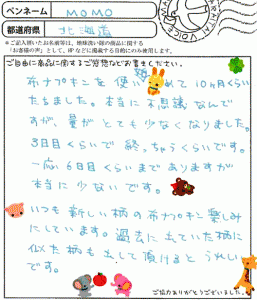 ペンネーム MOMO
都道府県 北海道
＊ご記入いたお名前等は、地球洗い隊の商品に関する
「お客様の声」として、HPなどに掲載する目的にのみ使用します。
ご自由に商品に関するご感想などお書きください。
布ナプキンを使い始めて10ヶ月くらい
たちました。本当に不思議なんで
すが、量がとても少なくなりました。
3日目くらいで終っちゃうくらいです。
一応6日目くらいまでありますが
本当に少ないです。
いつも新しい柄の布ナプキン楽しみ
にしています。過去に出ていた柄に
似た柄も出して頂けるとうれしい
です。
ご協力ありがとうございました。